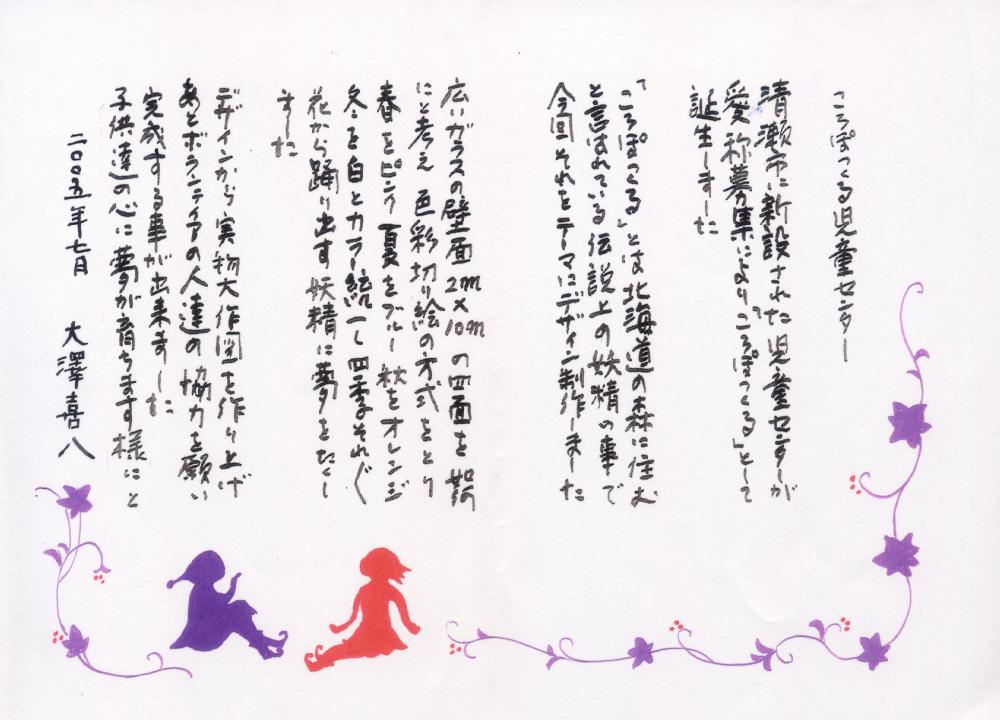 ころぽっくる児童センター
清瀬市に新設された児童センターが
愛称募集により「ころぽっくる」として
誕生しました
「ころぽっくる」とは北海道の森に住む
と言われている伝説上の妖精の事で
今回それをテーマにデザイン制作しました
広いガラスの壁面2m×10mの四面を
にと考え 色彩切り絵の方式をとり
春をピンク 夏をブルー 秋をオレンジ
冬を白とカラー統一し四季それぞれ
花から踊り出す妖精に夢をたくし
ました
デザインから実物大作図を作り上げ
あとボランティアの人達の協力を願い
完成する事が出来ました
子供達の心に夢が育ちます様にと
二〇〇五年七月 大澤喜八